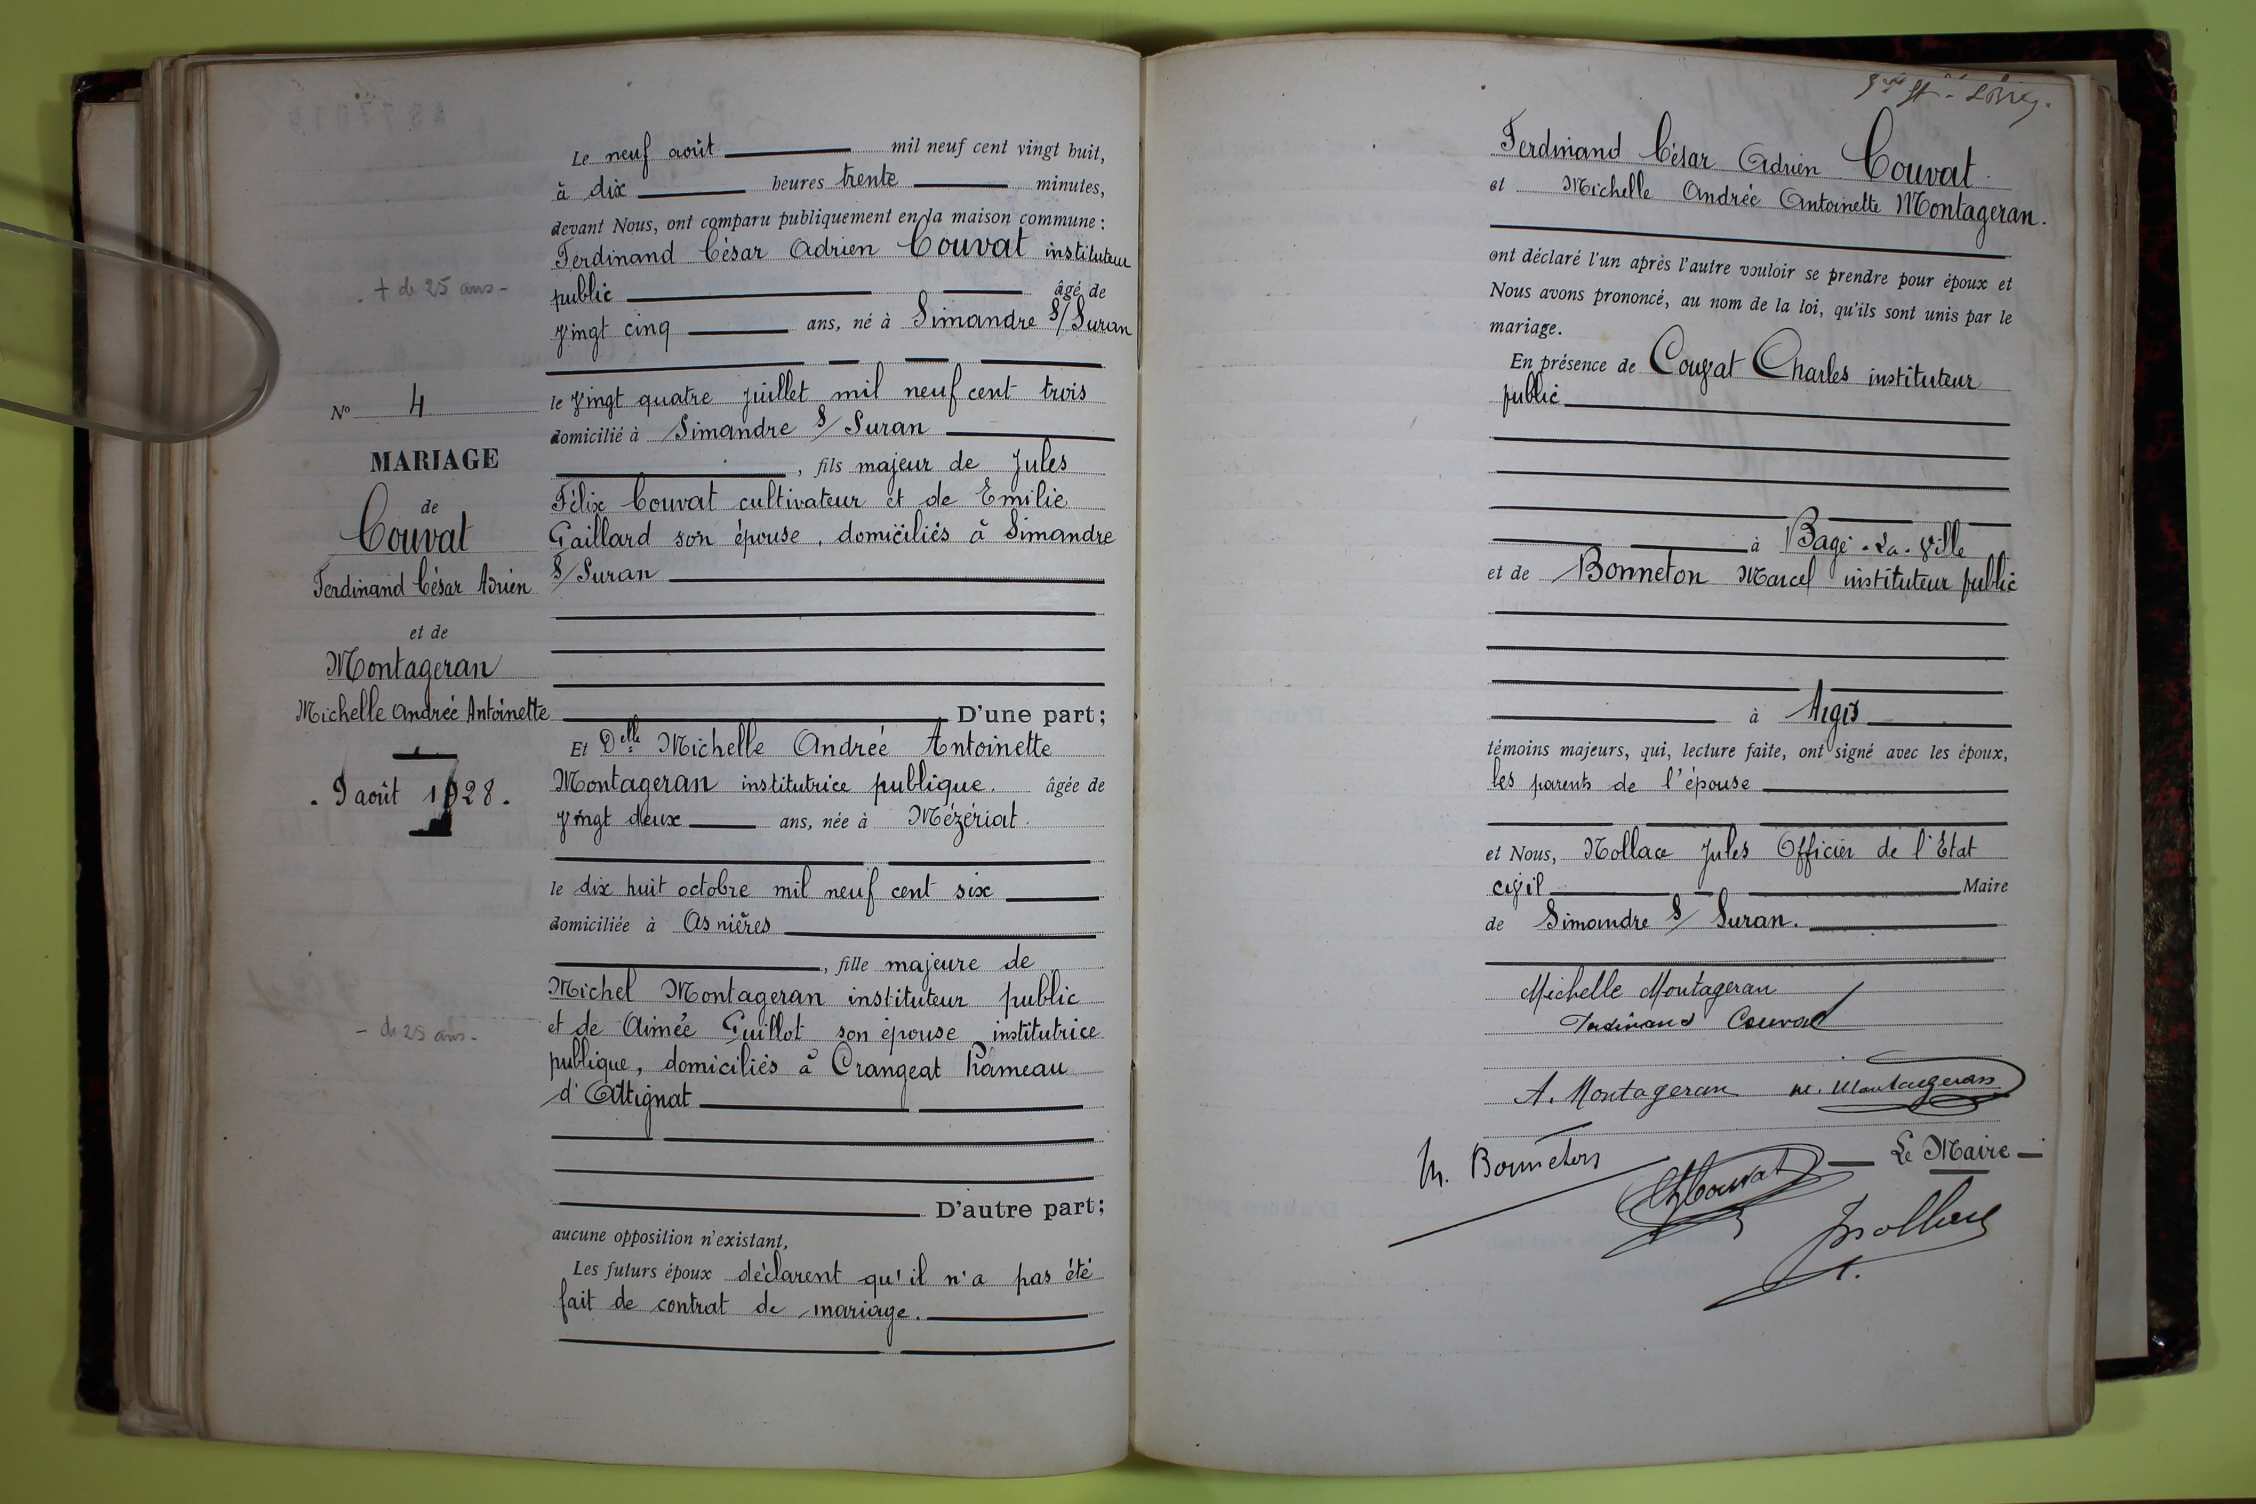 Le neuf août mil neuf cent vingt huit,
à dix heures trente minutes,
devant Nous, ont comparu publiquement en la maison commune :
Ferdinand César Adrien Couvat instituteur
+ de 25 ans -
public âgé de
vingt cinq ans, né à Simandre S/ Suran
N° 4
le vingt quatre juillet mil neuf cent trois
domicilié à Simandre S/ Suran
MARIAGE
, fils majeur de Jules
de
Félix Couvat cultivateur et de Emilie
Couvat
Gaillard son épouse, domiciliés à Simandre
Ferdinand César Adrien
S/ Suran
et de
Montageran
Michelle Andrée Antoinette
D'une part;
Et Delle Michelle Andrée Antoinette
. 9 août 1928 .
Montageran institutrice publique. âgée de
vingt deux ans, née à Mézériat.
le dix huit octobre mil neuf cent six
domiciliée à Asnières
, fille majeure de
Michel Montageran instituteur public
- de 25 ans -
et de Aimée Guillot son épouse institutrice
publique, domiciliés à Crangeat Hameau
d'Attignat
D'autre part;
aucune opposition n'existant,
Les futurs époux déclarent qu'il n'a pas été
fait de contrat de mariage.
Ferdinand César Adrien Couvat
et Michelle Andrée Antoinette Montageran.
ont déclaré l'un après l'autre vouloir se prendre pour époux et
Nous avons prononcé, au nom de la loi, qu'ils sont unis par le
mariage.
En présence de Couvat Charles instituteur
public
à Bagé-La-Ville
et de Bonneton Marcel instituteur public
à
témoins majeurs, qui, lecture faite, ont signé avec les époux,
les parents de l'épouse
et Nous, Nollace Jules Officier de l'Etat
civil Maire
de Simandre S/ Suran.
Michelle Montageran
Ferdinand Couvat
A. Montageran M. Montageran
M. Bonneton
Ch Couvat
Le Maire
J Nollace